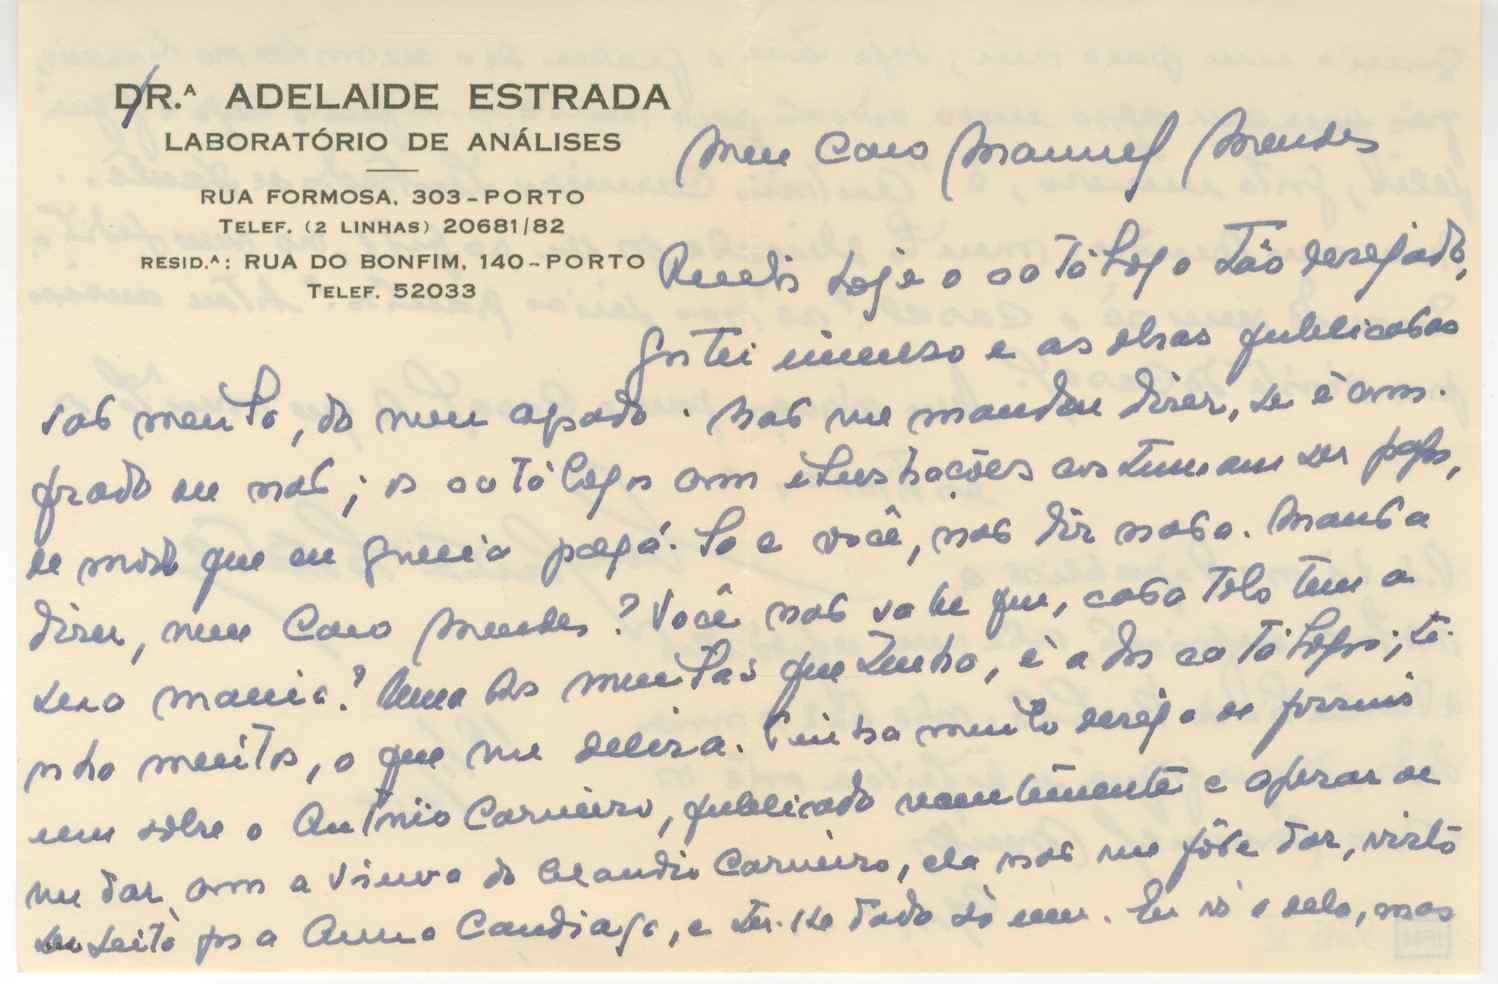 DR.ª ADELAIDE ESTRADA
LABORATÓRIO DE ANÁLISES
RUA FORMOSA, 303-PORTO
TELEF. (2 LINHAS) 20681/82
RESID.ª: RUA DO BONFIM, 140-PORTO
TELEF. 52033
Meu Caro Manuel Mendes
Recebi hoje o catálogo tão desejado,
gostei imenso e as obras publicadas
são muito, do meu agrado. Não me mandou dizer, se é com-
prado ou não; os catálogos com ilustrações costumam ser pagos,
de modo que eu queria pagá-lo e você, não diz nada. Manda
dizer, meu Caro Mendes? Você não sabe que, cada tolo tem a
sua mania? Uma das muitas que tenho, é a dos catálogos; te-
nho muitos, o que me delicia. Tinha muito desejo de possuir
um sôbre o António Carneiro, publicado recentemente e apesar de
me dar com a viuva do Claudio Carneiro, ela não me pôde dar, visto
ser feito por a Candiago, e ter-lhe dado só um. Eu vi e delo, mas